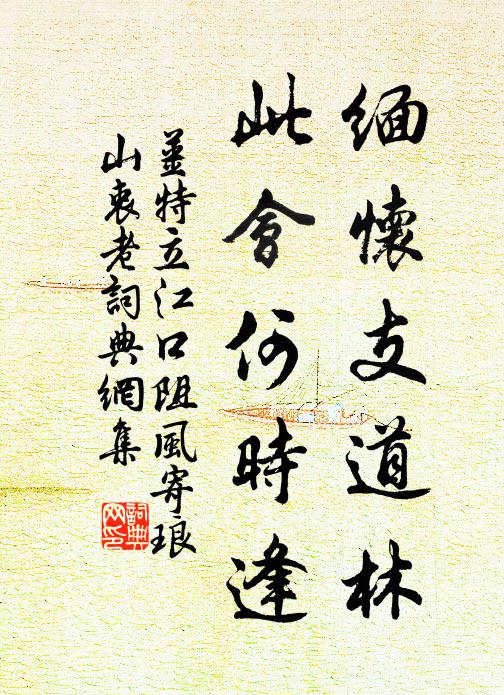 緬懷支道林
此會何時逢
姜特立江口阻風寄琅
山衷老詞典網集
詞典
网印